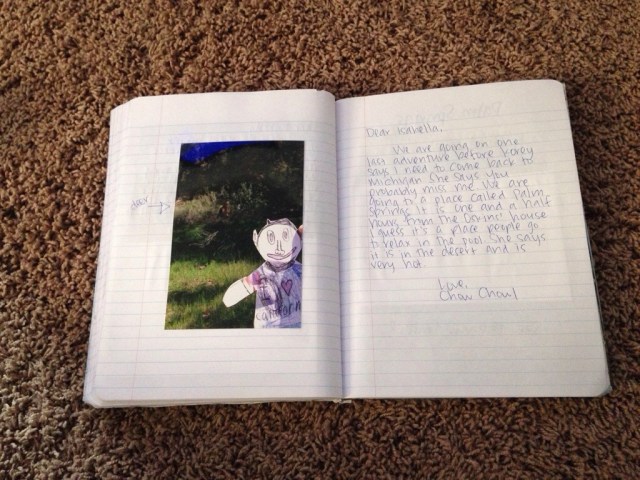 I ♥
Californ
Dear Isabella,
We are going on one
last adventure before Korey
says I need to come back to
Michigan. She says you
probably miss me. We are
going to a place called Palm
Springs. It is one and a half
hours from the Devins' house.
I guess it's a place people go
to relax in the pool. She says
it is in the desert and is
very hot.
Love,
Chow Chow!